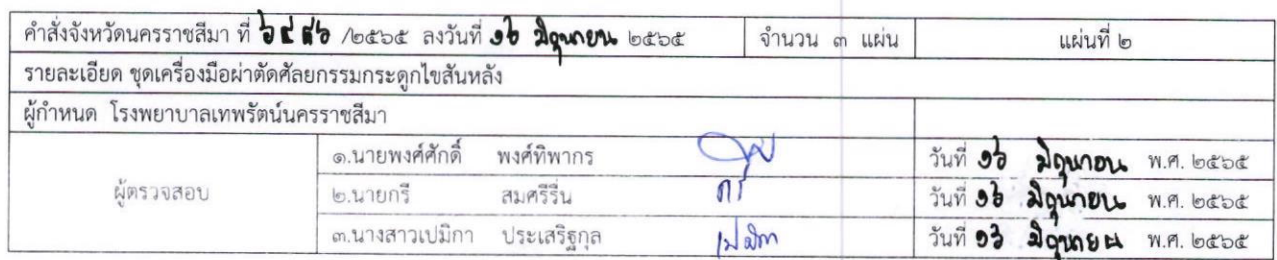 คำสั่งจังหวัดนครราชสีมา ที่ /๒๕๖๕ ลงวันที่ ๑๖ มิถุนายน ๒๕๖๕ จำนวน ๓ แผ่น แผ่นที่ ๒
รายละเอียด ชุดเครื่องมือผ่าตัดศัลยกรรมกระดูกไขสันหลัง
ผู้กำหนด โรงพยาบาลเทพรัตน์นครราชสีมา
๑.นายพงศ์ศักดิ์ พงศ์ทิพากร วันที่ ๑๖ มิถุนายน พ.ศ. ๒๕๖๕
ผู้ตรวจสอบ ๒.นายกรี สมศรีรื่น กรี วันที่ ๑๖ มิถุนายน พ.ศ. ๒๕๖๕
๓.นางสาวเปมิกา ประเสริฐกุล เปมิกา วันที่ ๑๖ มิถุนายน พ.ศ. ๒๕๖๕